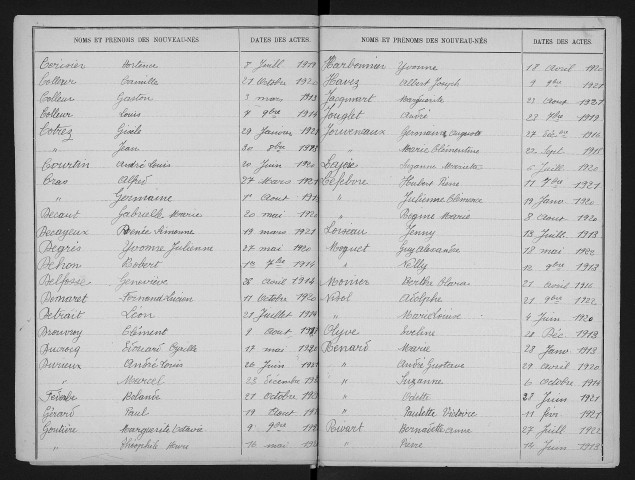 NOMS ET PRÉNOMS DES NOUVEAU-NÉS DATES DES ACTES.
Cerisier Hortence 8 Juill 1919
Colleur Camille 21 Octobre 1920
Colleur Gaston 3 mars 1913
Colleur Louis 7 9bre 1914
Cotrez Gisèle 29 Janvier 1921
" Jean 30 8bre
Courtin André Louis 20 Juin 1920
Cras Alfred 27 Mars 1921
" Germaine 1r Aout 1913
Decaut Gabrielle Marie 20 mai 1920
Decayeux Renée Simonne 19 mars 1921
Degrés Yvonne Julienne 27 mai 1920
Dehon Robert 1r 7bre 1914
Delfosse Geneviève 28 Avril 1914
Demaret Fernand Lucien 11 Octobre 1920
Detrait Léon 21 Juillet 1914
Clément 9 Aout
Ducrocq Edouard Cyrille 17 mai 1920
Durieux André Louis 26 Juin
" Marcel 23 décembre
Rolande 21 Octobre
Gérard Paul 19 Aout
Goutière Marguerite Octavie 9 9bre
" Théophile 16 mai
NOMS ET PRÉNOMS DES NOUVEAU-NÉS DATES DES ACTES.
Harbonnier Yvonne 18 Avril 1920
Havez Albert Joseph 9 9bre 1921
Jacquart Marguerite 23 Aout 1921
Jouglet André 28 9bre 1919
Jouveneaux Germaine 27 1914
" Marie Clémentine 22 Sept 1918
Suzanne 6 Juill 1920
Lefebvre Hubert Pierre 11 9bre 1921
" Julienne Clémence 19 Janv 1920
" Régine Marie 8 Aout 1920
Loiseau Jenny 18 Juill 1913
Moquet Guy Alexandre 18 mai 1922
" Nelly 16 9bre 1913
Monier Berthe Clara 21 Avril 1916
Adolphe 21 9bre 1922
" Marie Louise 4 Juin 1920
Olyve Eveline 21 Déc 1913
Renard Marie 28 Janv 1913
" André Gustave 29 Avril 1920
" Suzanne 6 Octobre 1914
" Odette 23 Juin 1921
" Paulette Victoire 11 févr 1921
Bernadette Anne 27 Juill 1922
" Pierre 14 Juin 1913